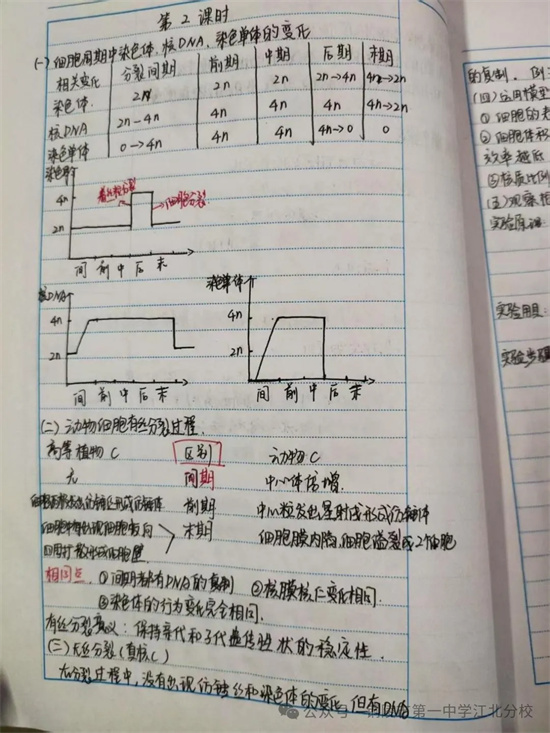 第2课时
(一)细胞周期中染色体、核DNA、染色单体的变化
相关变化 分裂间期 前期 中期 后期 末期
染色体 2n 2n 2n 2n→4n 4n→2n
核DNA 2n→4n 4n 4n 4n 4n→2n
染色单体 0→4n 4n 4n 4n→0 0
染色体
4n
2n
着丝粒分裂
细胞分裂
间 前 中 后 末
核DNA
4n
2n
间 前 中 后 末
染色单体
4n
2n
间 前 中 后 末
(二)动物细胞有丝分裂过程.
高等植物C 区别 动物C
无 间期 中心体倍增.
前期 中心粒发出星射线形成纺锤体
末期 细胞膜内陷,细胞缢裂成2个细胞
四周扩散形成细胞壁
相同点. ①间期都有DNA的复制 ②核膜核仁变化相同.
③染色体的行为变化完全相同.
有丝分裂意义:保持亲代和子代遗传性状的稳定性.
(三)无丝分裂(真核C)
在分裂过程中,没有出现纺锤丝和染色体的变化,但有DNA
的复制. 例
(四)应用模型
①细胞的
②细胞体积
效率越低
③核质比例
(五)观察
实验原理
实验用具:
实验步骤
公众号
第一中学江北分校